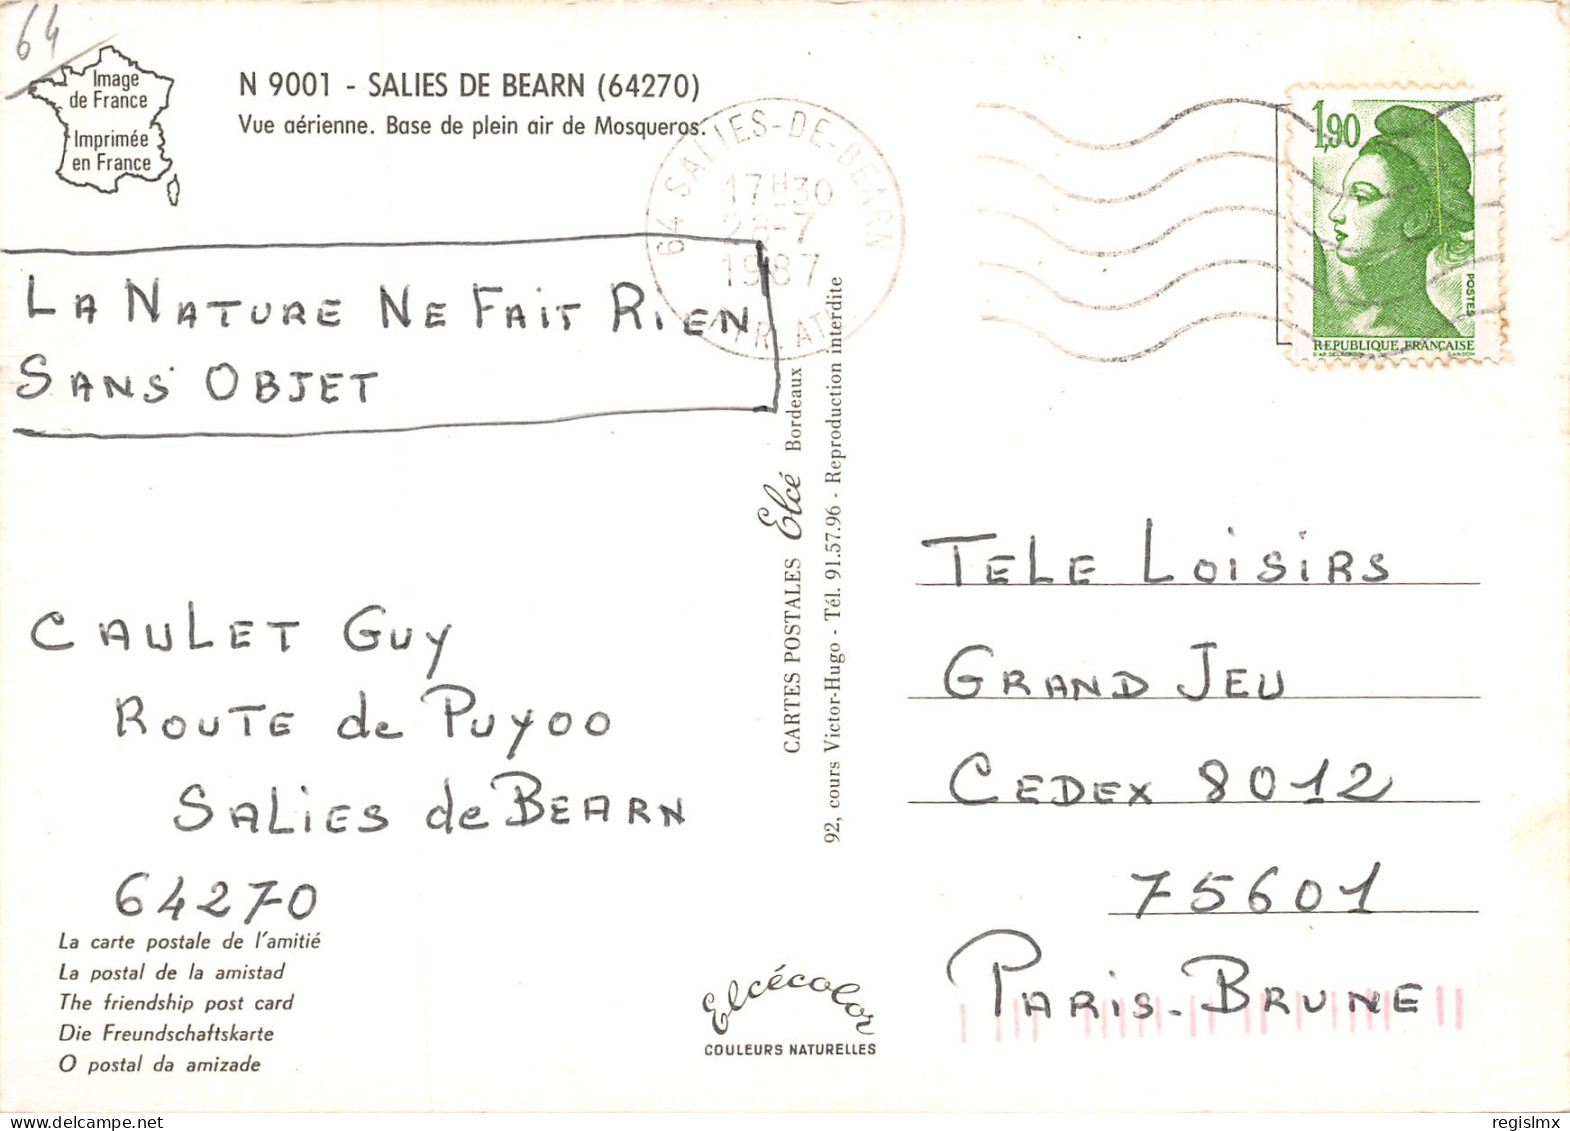 64
Image
de France
Imprimée
en France
N 9001 - SALIES DE BEARN (64270)
Vue aérienne. Base de plein air de Mosqueros.
64 SALIES-DE-BEARN
17H30
28-7
1987
PYR. ATL.
1,90
POSTES
REPUBLIQUE FRANÇAISE
D'AP. DELACROIX GANDON
LA NATURE NE FAIT RIEN
SANS OBJET
CAULET GUY
ROUTE de PUYOO
SALIES de BEARN
64270
La carte postale de l'amitié
La postal de la amistad
The friendship post card
Die Freundschaftskarte
O postal da amizade
CARTES POSTALES Elcé Bordeaux
92, cours Victor-Hugo - Tél. 91.57.96 - Reproduction interdite
Elcécolor
COULEURS NATURELLES
TELE LOISIRS
GRAND JEU
CEDEX 8012
75601
PARIS-BRUNE
regislmx